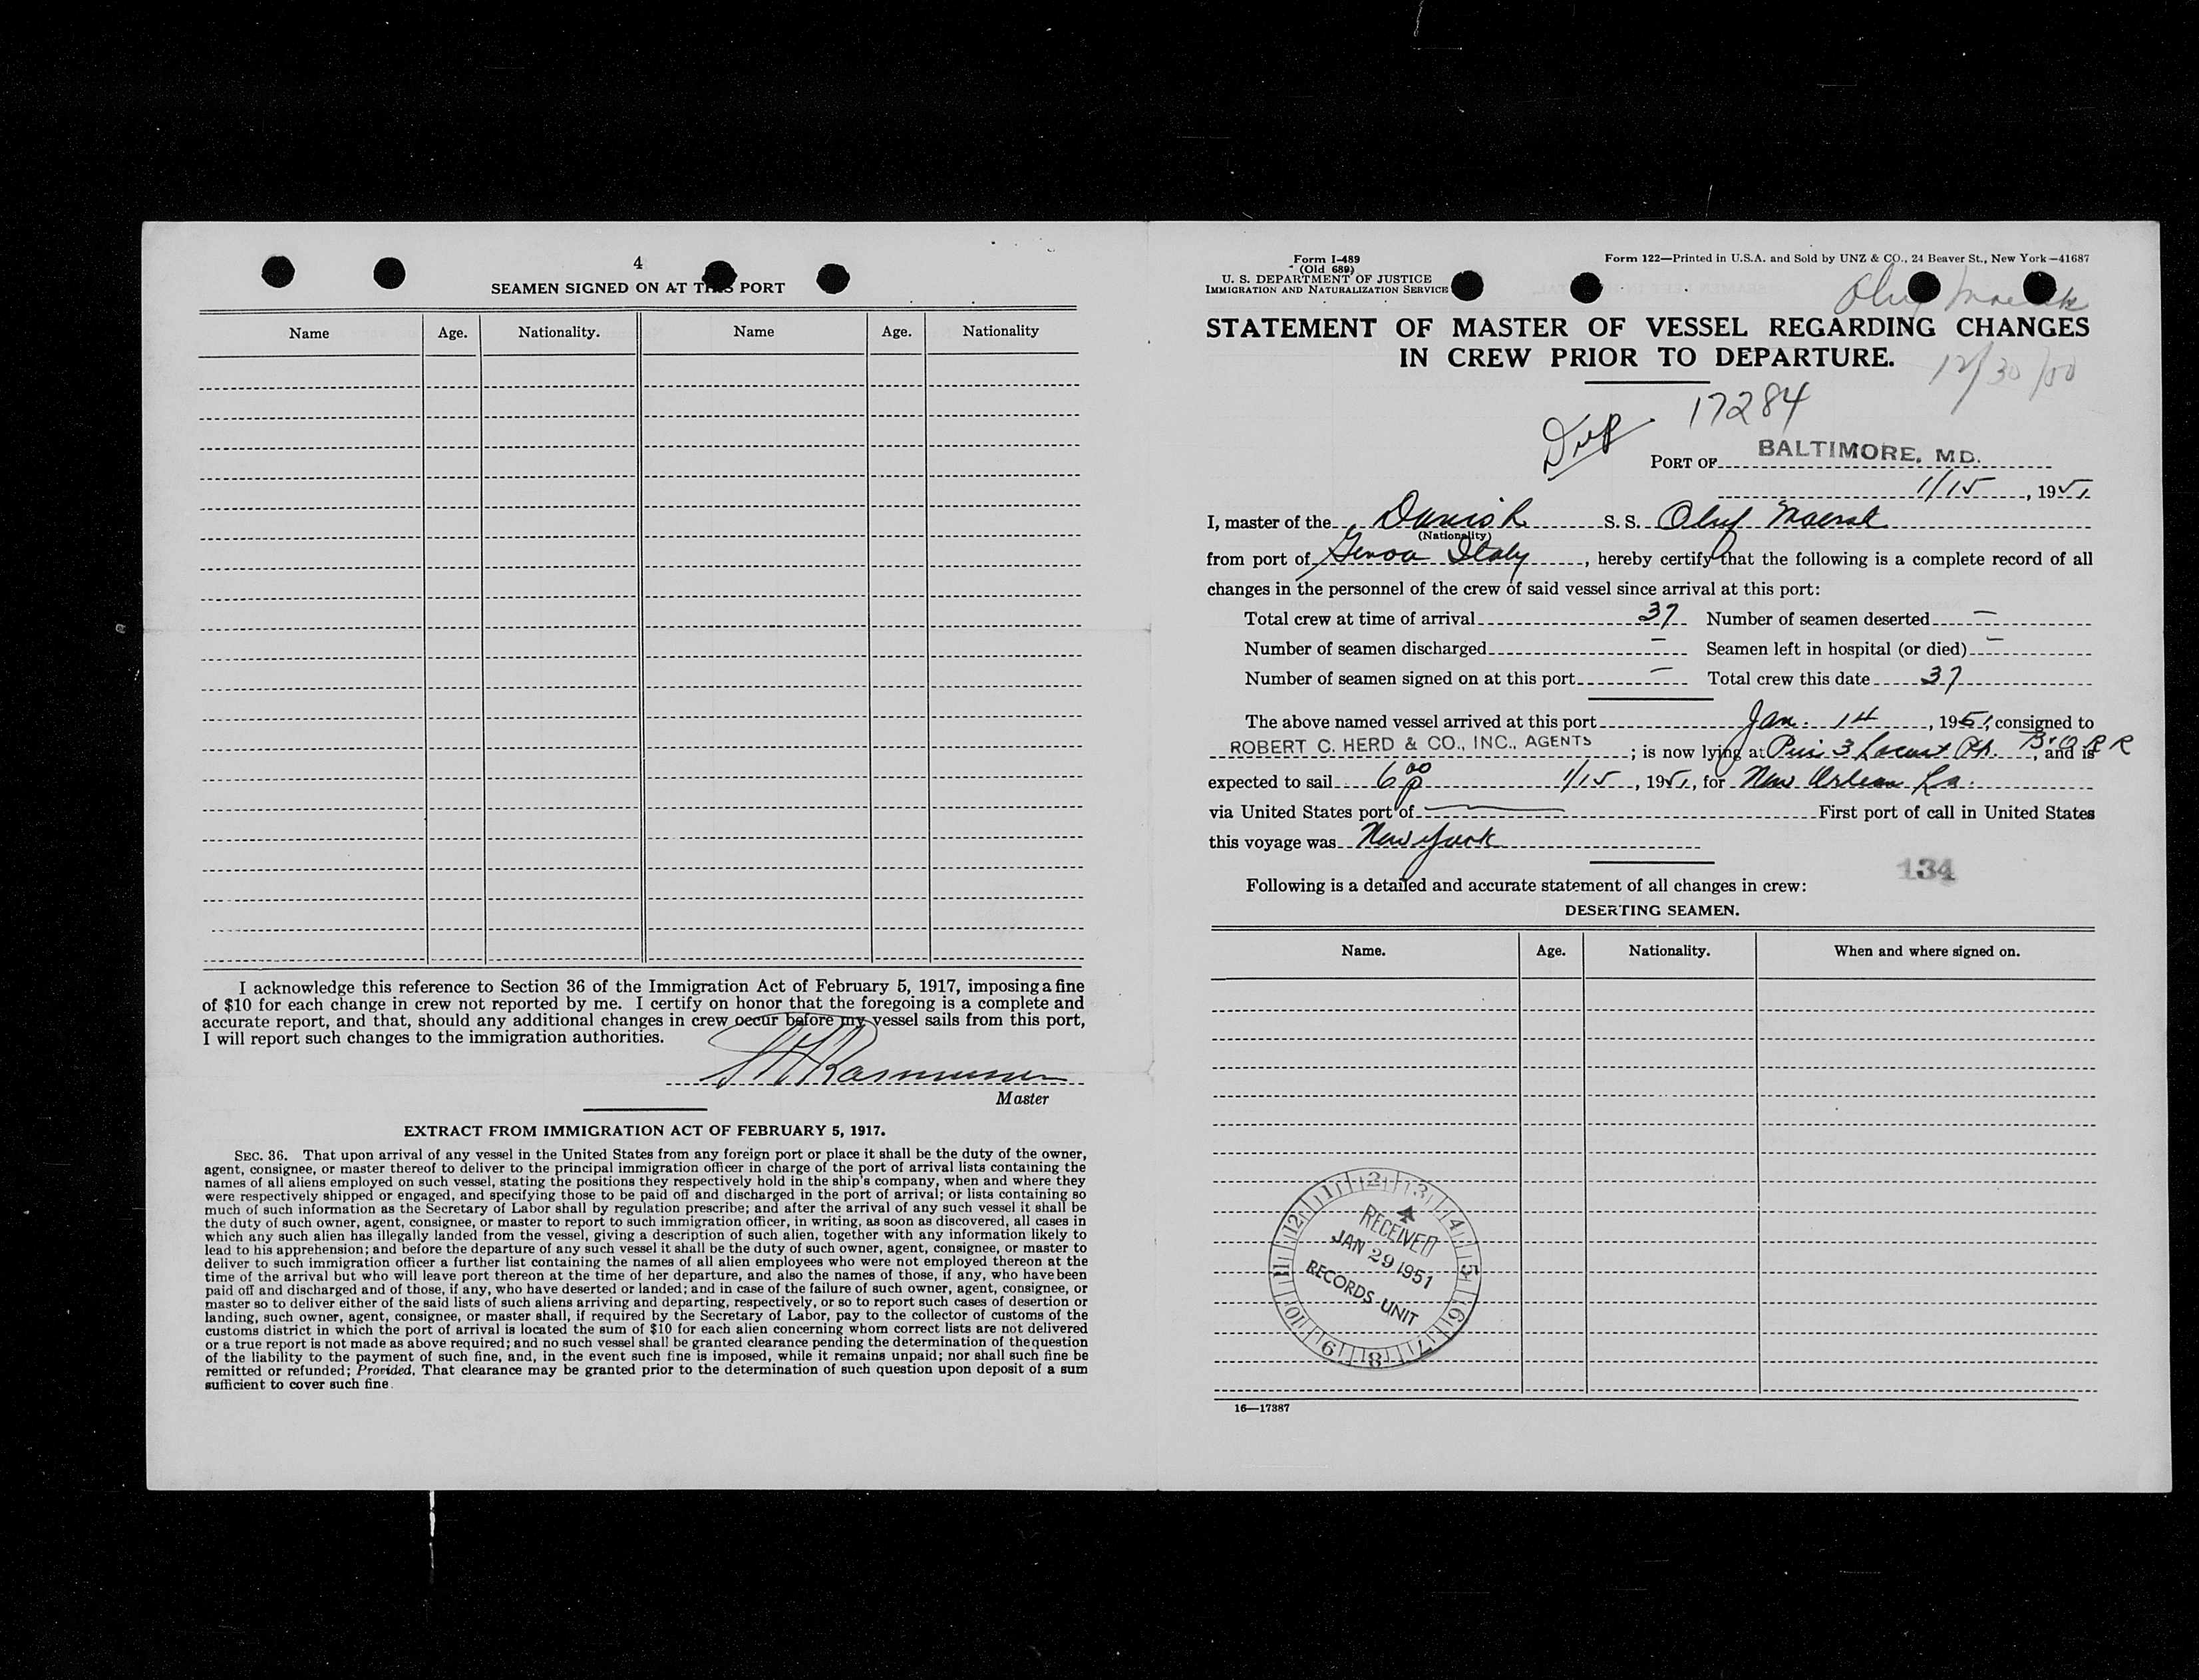 4
SEAMEN SIGNED ON AT THIS PORT
Name Age. Nationality. Name Age. Nationality
I acknowledge this reference to Section 36 of the Immigration Act of February 5, 1917, imposing a fine
of $10 for each change in crew not reported by me. I certify on honor that the foregoing is a complete and
accurate report, and that, should any additional changes in crew occur before my vessel sails from this port,
I will report such changes to the immigration authorities.
Rasmussen
Master
EXTRACT FROM IMMIGRATION ACT OF FEBRUARY 5, 1917.
SEC. 36. That upon arrival of any vessel in the United States from any foreign port or place it shall be the duty of the owner,
agent, consignee, or master thereof to deliver to the principal immigration officer in charge of the port of arrival lists containing the
names of all aliens employed on such vessel, stating the positions they respectively hold in the ship's company, when and where they
were respectively shipped or engaged, and specifying those to be paid off and discharged in the port of arrival; or lists containing so
much of such information as the Secretary of Labor shall by regulation prescribe; and after the arrival of any such vessel it shall be
the duty of such owner, agent, consignee, or master to report to such immigration officer, in writing, as soon as discovered, all cases in
which any such alien has illegally landed from the vessel, giving a description of such alien, together with any information likely to
lead to his apprehension; and before the departure of any such vessel it shall be the duty of such owner, agent, consignee, or master to
deliver to such immigration officer a further list containing the names of all alien employees who were not employed thereon at the
time of the arrival but who will leave port thereon at the time of her departure, and also the names of those, if any, who have been
paid off and discharged and of those, if any, who have deserted or landed; and in case of the failure of such owner, agent, consignee, or
master so to deliver either of the said lists of such aliens arriving and departing, respectively, or so to report such cases of desertion or
landing, such owner, agent, consignee, or master shall, if required by the Secretary of Labor, pay to the collector of customs of the
customs district in which the port of arrival is located the sum of $10 for each alien concerning whom correct lists are not delivered
or a true report is not made as above required; and no such vessel shall be granted clearance pending the determination of the question
of the liability to the payment of such fine, and, in the event such fine is imposed, while it remains unpaid; nor shall such fine be
remitted or refunded; Provided, That clearance may be granted prior to the determination of such question upon deposit of a sum
sufficient to cover such fine.
Form I-489
(Old 689)
U. S. DEPARTMENT OF JUSTICE
IMMIGRATION AND NATURALIZATION SERVICE
Form 122—Printed in U.S.A. and Sold by UNZ & CO., 24 Beaver St., New York—41687
Oluf Maersk
STATEMENT OF MASTER OF VESSEL REGARDING CHANGES
IN CREW PRIOR TO DEPARTURE.
12/30/50
17284
Dep
PORT OF BALTIMORE, MD.
1/15, 1951
I, master of the Danish S. S. Oluf Maersk
(Nationality)
from port of Genoa Italy, hereby certify that the following is a complete record of all
changes in the personnel of the crew of said vessel since arrival at this port:
Total crew at time of arrival 37 Number of seamen deserted —
Number of seamen discharged — Seamen left in hospital (or died) —
Number of seamen signed on at this port — Total crew this date 37
The above named vessel arrived at this port Jan. 14, 1951, consigned to
ROBERT C. HERD & CO., INC., AGENTS; is now lying at Pier 3 Locust Pt. B & O R R, and is
expected to sail 6 00 p 1/15, 1951, for New Orleans La.
via United States port of — First port of call in United States
this voyage was New York
134
Following is a detailed and accurate statement of all changes in crew:
DESERTING SEAMEN.
Name. Age. Nationality. When and where signed on.
12 1 2 3 4 5 6 7 8 9 10 11
RECEIVED
JAN 29 1951
RECORDS UNIT
16—17387